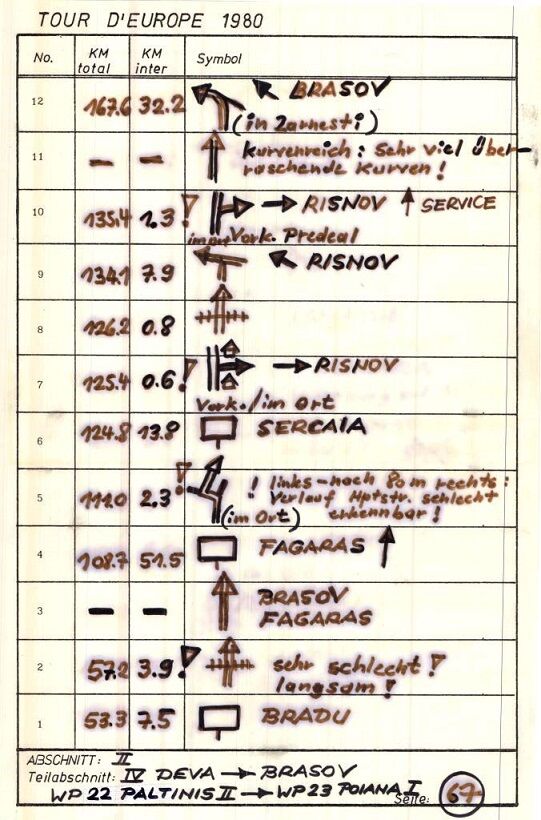 TOUR D'EUROPE 1980
No. KM total KM inter Symbol
12 167.6 32.2 BRASOV
(in Zarnesti)
11 — — kurvenreich: Sehr viel über-
raschende Kurven!
10 135.4 1.3 ! → RISNOV ↑ SERVICE
Vork. Predeal
9 134.1 7.9 RISNOV
8 126.2 0.8
7 125.4 0.6 ! → RISNOV
Vork./im Ort
6 124.8 13.8 SERCAIA
5 111.0 2.3 ! ! links - nach 80m rechts:
Verlauf Hptstr. schlecht
(im Ort) erkennbar!
4 108.7 51.5 FAGARAS ↑
3 — — BRASOV
FAGARAS
2 57.2 3.9 ! sehr schlecht!
langsam!
1 53.3 7.5 BRADU
ABSCHNITT: II
Teilabschnitt: IV DEVA → BRASOV
WP 22 PALTINIS II → WP 23 POIANA I
Seite: 67